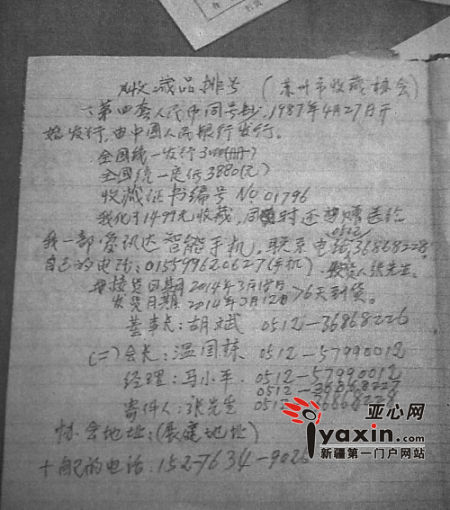 收藏品排号 (苏州市收藏协会)
一、第四套人民币同号钞,1987年4月27日开
始发行,由中国人民银行发行。
全国统一发行3000(册)
全国统一定价3880(元)
收藏证书编号 No 01796
我化了1499元收藏,同时还赠送给
我一部 智能手机。联系电话 0512 36868228,
自己的电话:015599620627(手机) 张先生。
接货日期 2014年3月18日
发货日期 2014年3月12日 >6天到货。
董事长:胡斌 0512-36868226
(二)会长:温国栋 0512-57990012
经理:马小平 0512-57990012
0512-36868227
寄件人:张先生 0512-36868228
协会地址:( 地址)
的电话:152-7634-902
亚心网
iyaxin.com
新疆第一门户网站